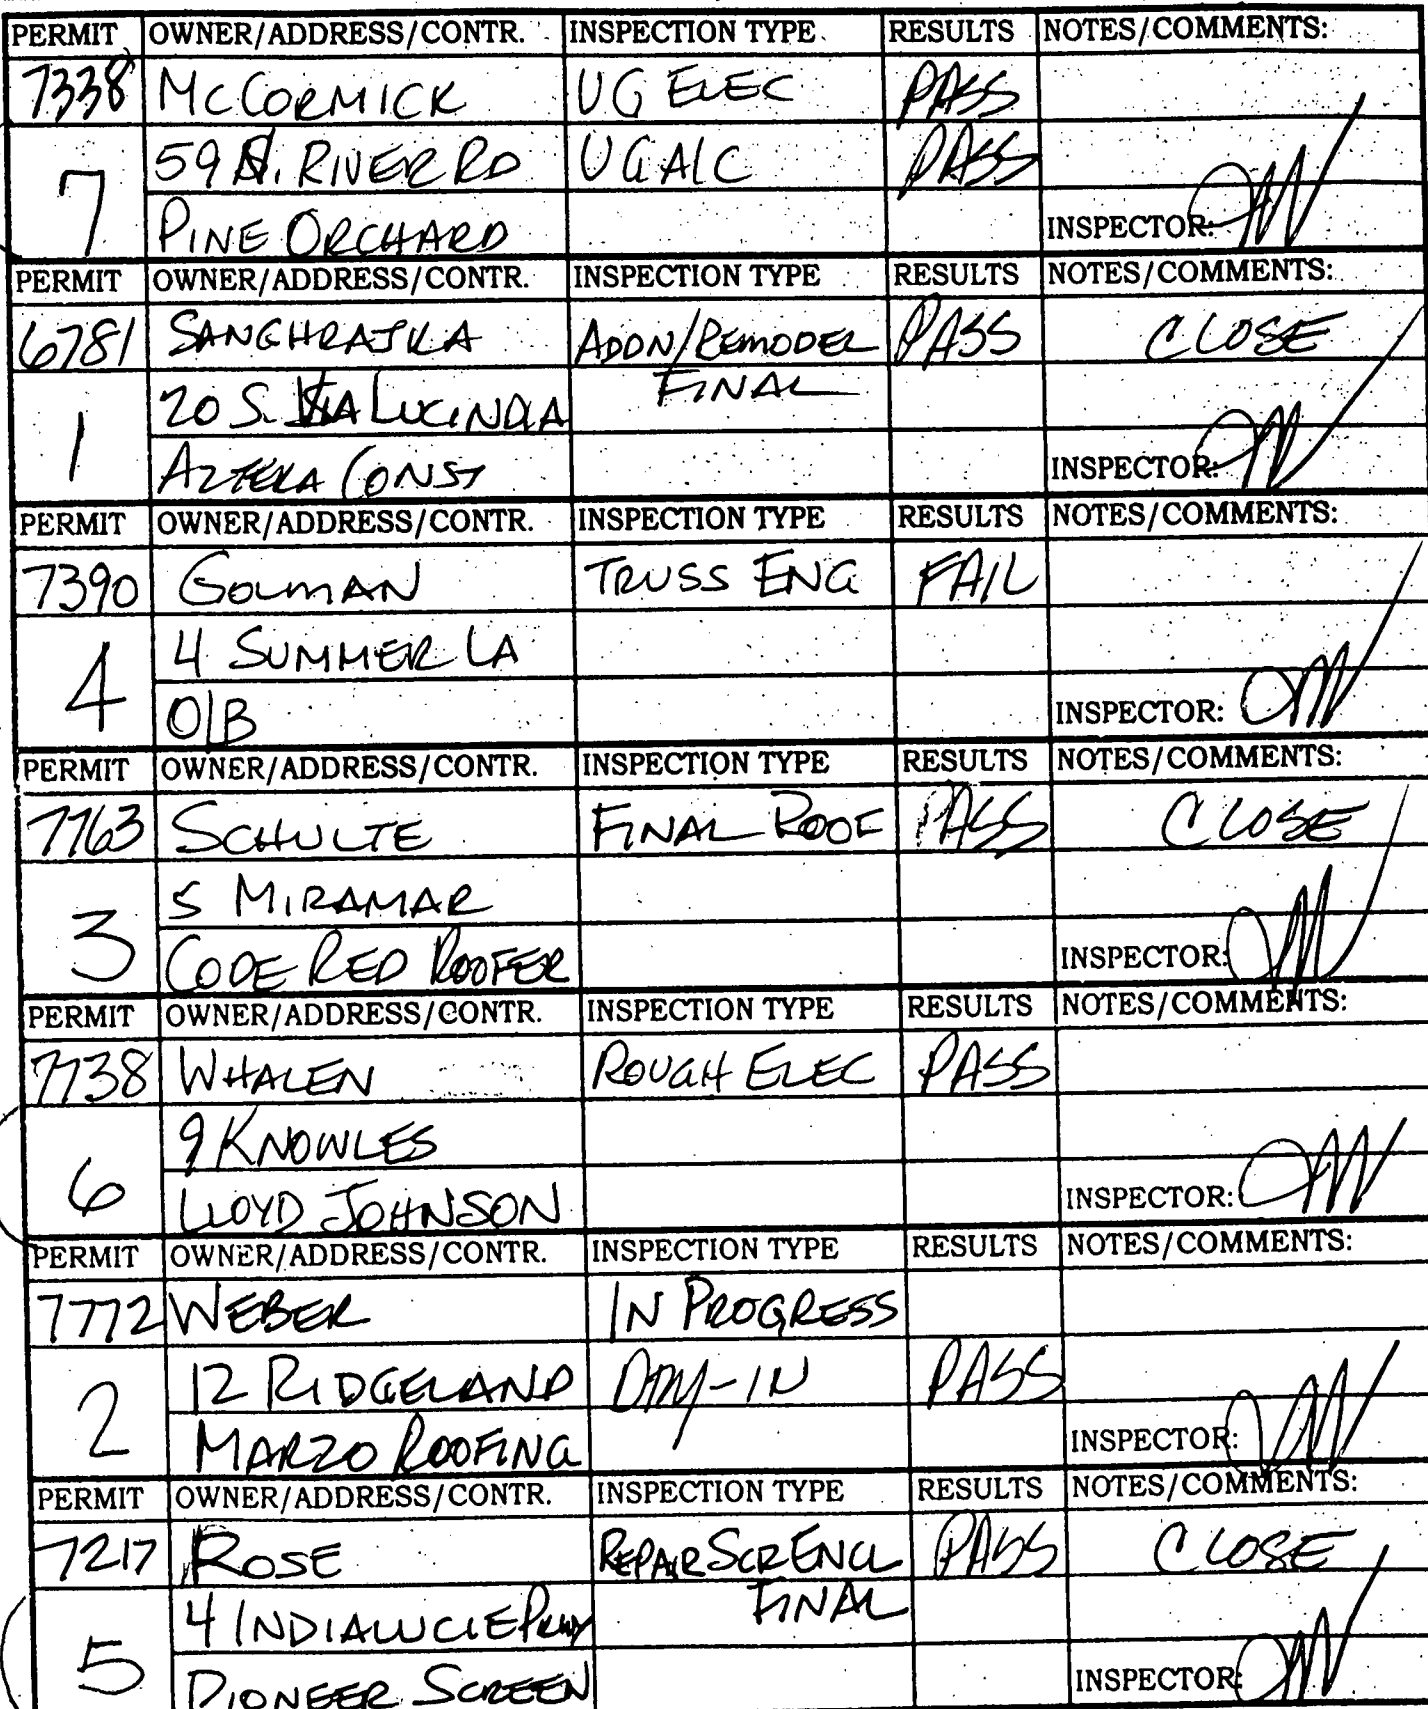 PERMIT OWNER/ADDRESS/CONTR. INSPECTION TYPE RESULTS NOTES/COMMENTS:
7338 McCORMICK UG ELEC PASS
7 59 N. RIVER RD UG A/C PASS
PINE ORCHARD INSPECTOR:
PERMIT OWNER/ADDRESS/CONTR. INSPECTION TYPE RESULTS NOTES/COMMENTS:
6781 SANGHRAJKA ADDN/REMODEL PASS CLOSE
1 20 S. VIA LUCINDIA FINAL
AZTEKA CONST INSPECTOR:
PERMIT OWNER/ADDRESS/CONTR. INSPECTION TYPE RESULTS NOTES/COMMENTS:
7390 GOLMAN TRUSS ENG FAIL
4 4 SUMMER LA
O/B INSPECTOR:
PERMIT OWNER/ADDRESS/CONTR. INSPECTION TYPE RESULTS NOTES/COMMENTS:
7763 SCHULTE FINAL ROOF PASS CLOSE
3 5 MIRAMAR
CODE RED ROOFER INSPECTOR:
PERMIT OWNER/ADDRESS/CONTR. INSPECTION TYPE RESULTS NOTES/COMMENTS:
7738 WHALEN ROUGH ELEC PASS
6 9 KNOWLES
LLOYD JOHNSON INSPECTOR:
PERMIT OWNER/ADDRESS/CONTR. INSPECTION TYPE RESULTS NOTES/COMMENTS:
7772 WEBER IN PROGRESS
2 12 RIDGELAND DRY-IN PASS
MARZO ROOFING INSPECTOR:
PERMIT OWNER/ADDRESS/CONTR. INSPECTION TYPE RESULTS NOTES/COMMENTS:
7217 ROSE REPAIR SCR ENCL PASS CLOSE
5 4 INDIALUCIE PKWY FINAL
PIONEER SCREEN INSPECTOR: